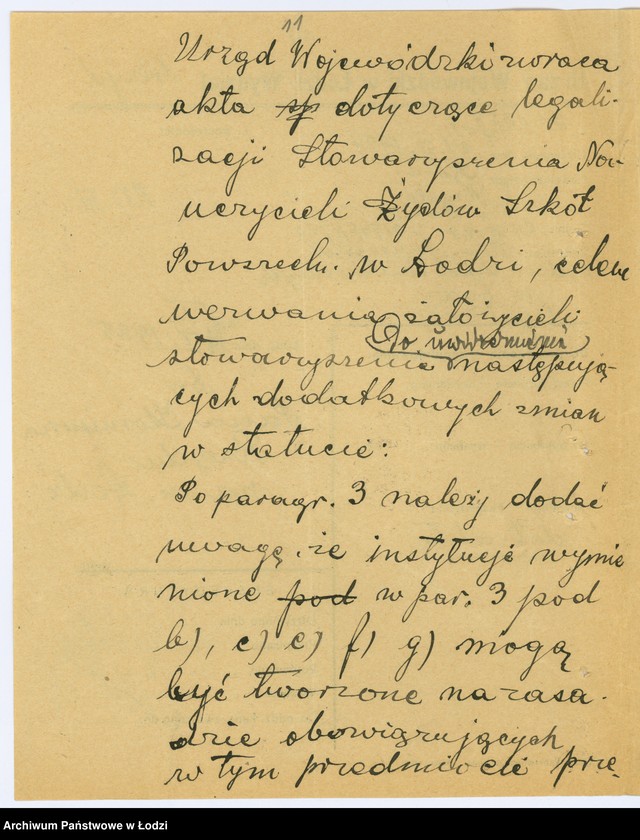 11
Urząd Wojewódzki zwraca
akta sp dotyczące legali-
zacji Stowarzyszenia Na-
uczycieli Żydów Szkół
Powszech. w Łodzi, celem
wezwania założycieli
Do uwidocznienia
stowarzyszenia następują-
cych dodatkowych zmian
w statucie:
Po paragr. 3 należy dodać
uwagę, że instytucje wymie
nione pod w par. 3 pod
b), c) e) f) g) mogą
być tworzone na zasa-
dzie obowiązujących
w tym przedmiocie prze-
Archiwum Państwowe w Łodzi